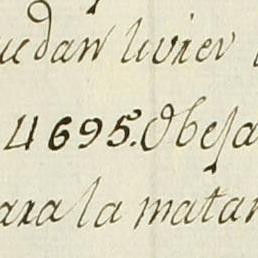 uedan livier
4695. Obeja
para la matan